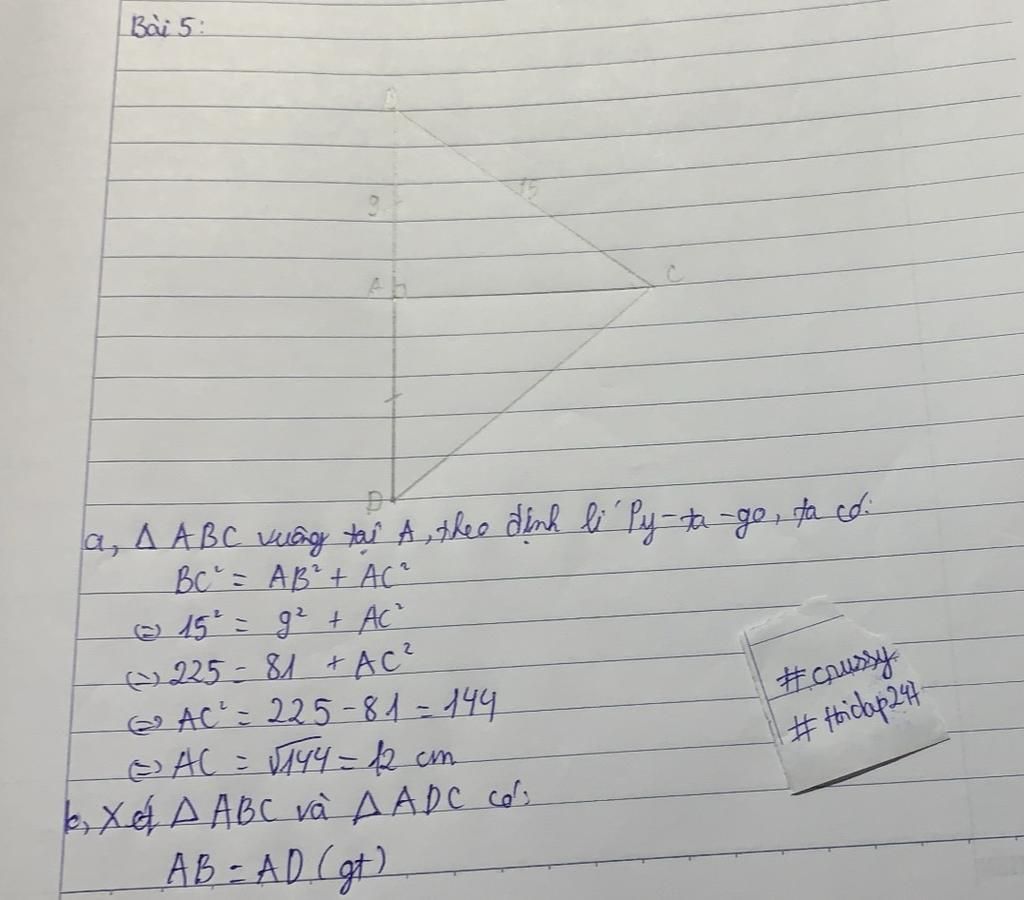 Bài 5:
B
15
9
A
C
D
a, Δ ABC vuông tại A, theo định lí Py-ta-go, ta có:
BC² = AB² + AC²
⇔ 15² = 9² + AC²
⇔ 225 = 81 + AC²
⇔ AC² = 225 - 81 = 144
⇔ AC = √144 = 12 cm
b, Xét Δ ABC và Δ ADC có:
AB = AD (gt)
#cpussy
#hoidap247